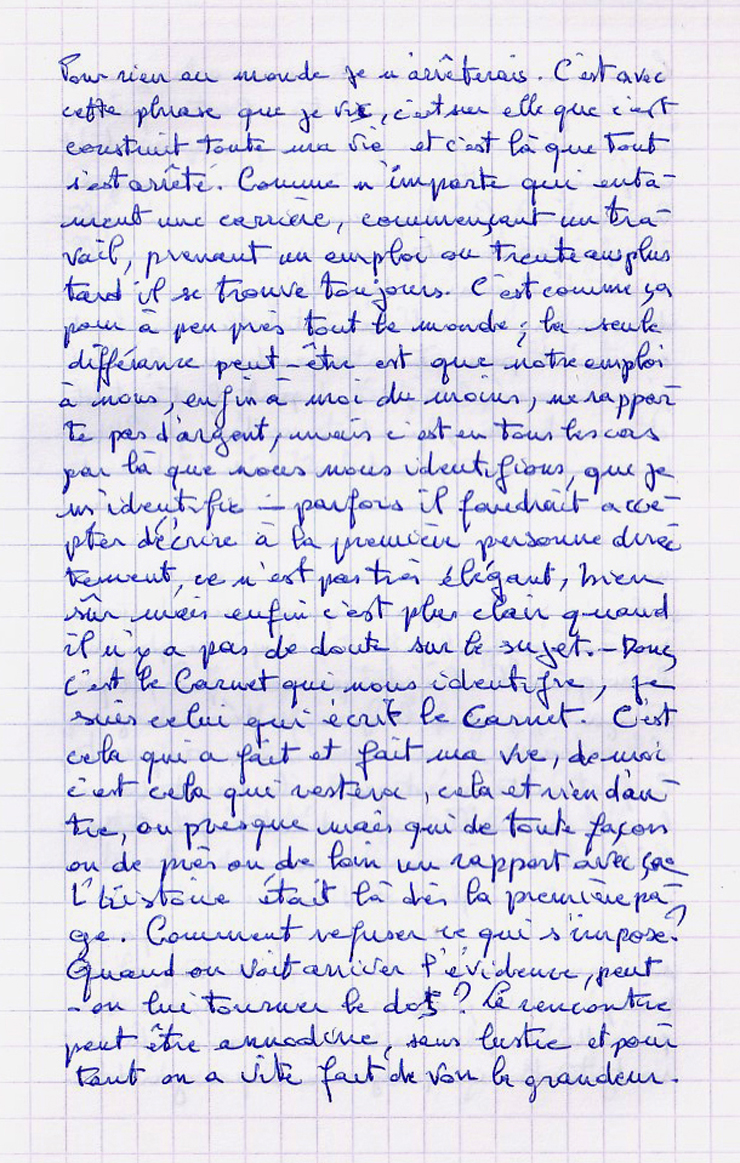 Pour rien au monde je n'arrêterais. C'est avec
cette phrase que je vis, c'est sur elle que c'est
construit toute ma vie et c'est là que tout
s'est arrêté. Comme n'importe qui enta-
ment une carrière, commençant un tra-
vail, prenant un emploi ou trente ans plus
tard il se trouve toujours. C'est comme ça
pour à peu près tout le monde ; la seule
différance peut-être est que notre emploi
à nous, enfin à moi du moins, ne rappor-
te pas d'argent, mais c'est en tous les cas
par là que nous nous identifions, que je
m'identifie – parfois il faudrait acce-
pter décrire à la première personne direc-
tement, ce n'est pas très élégant, bien
sûr mais enfin c'est plus clair quand
il n'y a pas de doute sur le sujet. – Donc,
c'est le Carnet qui nous identifie, je
suis celui qui écrit le Carnet. C'est
cela qui a fait et fait ma vie, de moi
c'est cela qui restera, cela et rien d'au-
tre, ou presque mais qui de toute façon
ou de près ou de loin un rapport avec ça.
L'histoire était là dès la première pa-
ge. Comment refuser ce qui s'impose ?
Quand on voit arriver l'évidence, peut
-on lui tourner le dos ? La rencontre
peut être annodine, sans lustre et pour
tant on a vite fait de voir la grandeur.